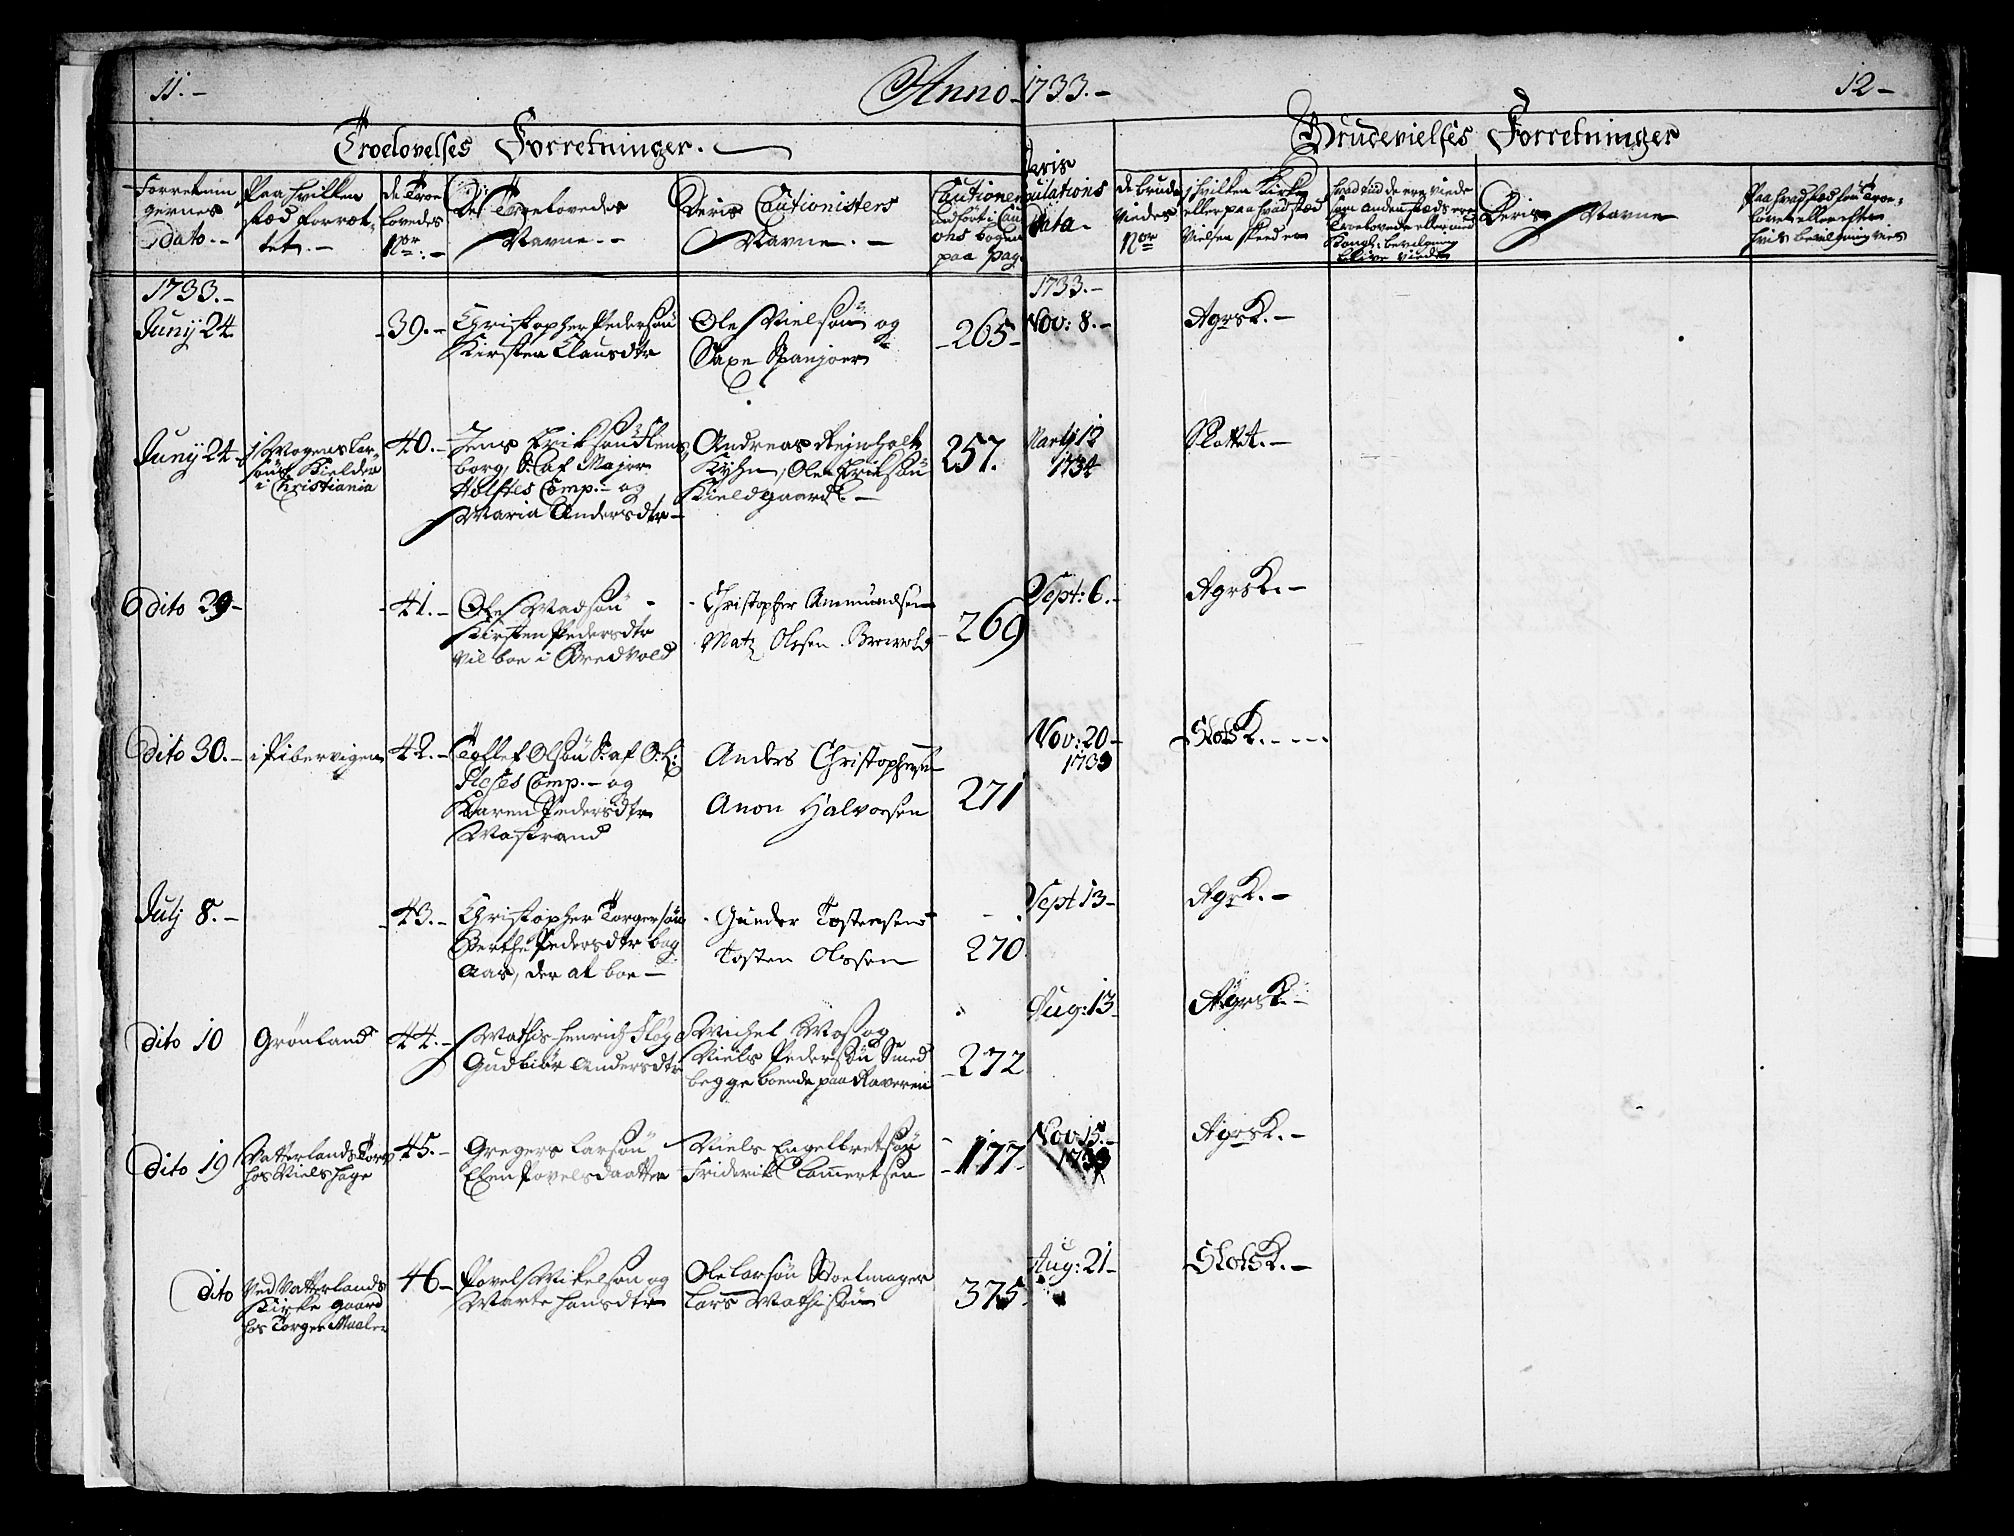 11.-
Anno 1733.-
12-
Troelovelses Forretninger.
Brudevielses Forretninger
Forretnin
gernes
Dato.-
Paa hvilken
stæd forret-
tet.-
de Troe
lovedes
No:-
De Troelovedes
Navne.-
Deris Cautionisters
Navne.-
Cautionen
indført i Cau
ohs bogen
paa pag.
Deris
Copulations
Data.
de brude
viedes
Nor
i hvilken Kirke
eller paa hvad stæd
Vielsen skeed er
Deris Navne
1733.-
Juny 24.
39.-
Christopher Pedersøn
Kirsten Clausdtr
Ole Nielsøn og
Saxe Spanjoer
265
1733.-
Nov: 8.-
AgrsK.-
Juny 24
i Mogens Lar-
søns Kielder
i Christiania
40.-
Jens Eriksøn Flens
borg, S. af Major
Holstes Comp.- og
Maria Andersdtr-
Andreas Reinholt
Kyhn, Ole Eriksøn
Kieldgaard.-
257.
Martij 12
1734
Slottet.-
Dito 29-
41.-
Ole Madsøn -
Kirsten Pedersdtr
vil boe i Bredvold
Christopher Ammundsen
Matz Olssen Brevold
269
Sept: 6.-
AgrsK.-
Dito 30.-
i Pibervigen
42.-
Tollef Olsøn S. af O. L:
Comp.- og
Karen Pedersdtr
Mastrand
Anders Christophersen
Anon Halvorsen
271
Nov: 20-
1733
SlotsK.-
Julj 8.-
43.-
Christopher Torgersøn
Berthe Pedersdtr bag
Aas, der at boe-
Gunder Tostensen
Tosten Olssen
270.
Sept 13-
AgrK.-
Dito 10
Grønland
44.-
Mathis Henrich Fløg
Gudbiør Andersdtr
Michel Mos og
Niels Pedersøn Smed
begge boende paa Raveren
272
Aug: 13
AgrsK.-
Dito 19
Vatterlands Torv
hos Niels Hage
45.-
Gregers Larsøn
Elen Povelsdaatter
Niels Engelbretsøn
Friderik Lamertsen
177
Nov 15.-
1733
AgrsK.-
Dito
Ved Vatterlands
Kirke gaard
hos Torger Maaler
46-
Povel Mikelsøn og
Marte Hansdtr
Ole Larsøn Stoelmager
Lars Mathisøn
375
Aug: 21-
SlotsK.-